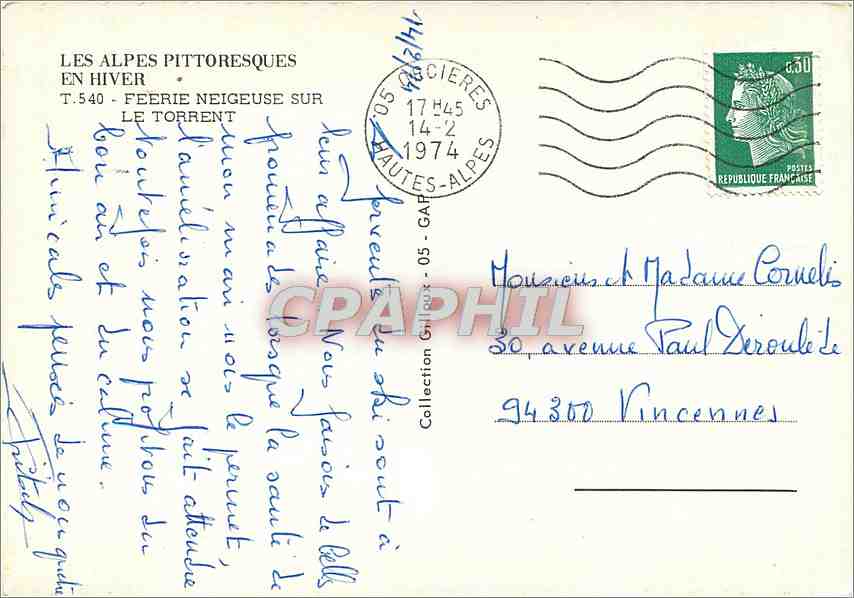 LES ALPES PITTORESQUES
EN HIVER
T.540 - FEERIE NEIGEUSE SUR
LE TORRENT
14/2/74
05 ORCIERES
17H45
14-2
1974
HAUTES-ALPES
0,30
POSTES
REPUBLIQUE FRANÇAISE
Les fervents du ski sont à
leur affaire. Nous faisons de belles
promenades lorsque la santé de
mon mari nous le permet,
l'amélioration se fait attendre
toutefois nous profitons du
bon air et du calme.
Amicales pensées de nous quatre
Collection Gilloux - 05 - GAP
CPAPHIL
Monsieur et Madame Cornelis
30, avenue Paul Déroulède
94300 Vincennes